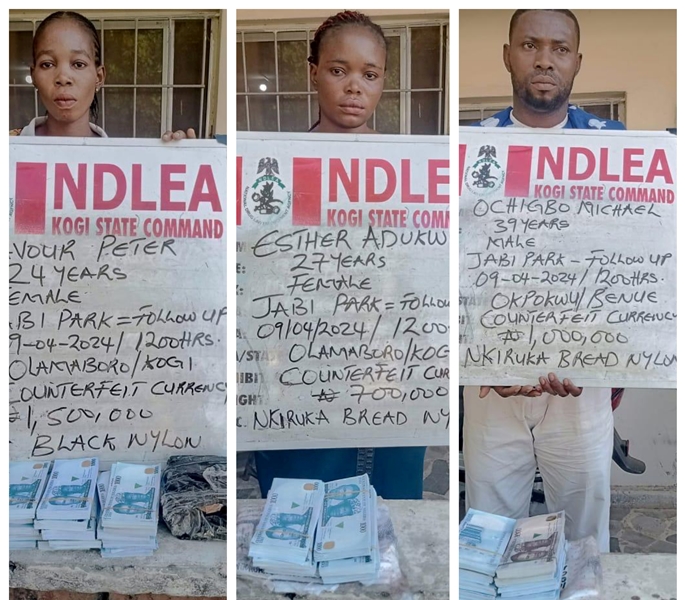 NDLEA
KOGI STATE COMMAND
VOUR PETER
24 YEARS
EMALE
ABI PARK = FOLLOW UP
9-04-2024/1200HRS.
OLAMABORO/KOGI
COUNTERFEIT CURRENCY
₦1,500,000
BLACK NYLON
NDLE
KOGI STATE COMM
ESTHER ADUKW
E: 27 YEARS
FEMALE
JABI PARK = FOLLOW
09/04/2024/1200
/STA OLAMABORO/KOG
HIBIT COUNTERFEIT CUR
IGHT ₦ 700,000
C. NKIRUKA BREAD NY
NDLEA
KOGI STATE COMMAND
OCHIGBO MICHAEL
39 YEARS
MALE
JABI PARK - FOLLOW UP
09-04-2024/1200HRS.
OKPOKWU/BENUE
COUNTERFEIT CURRENCY
₦1,000,000
NKIRUKA BREAD NYLON